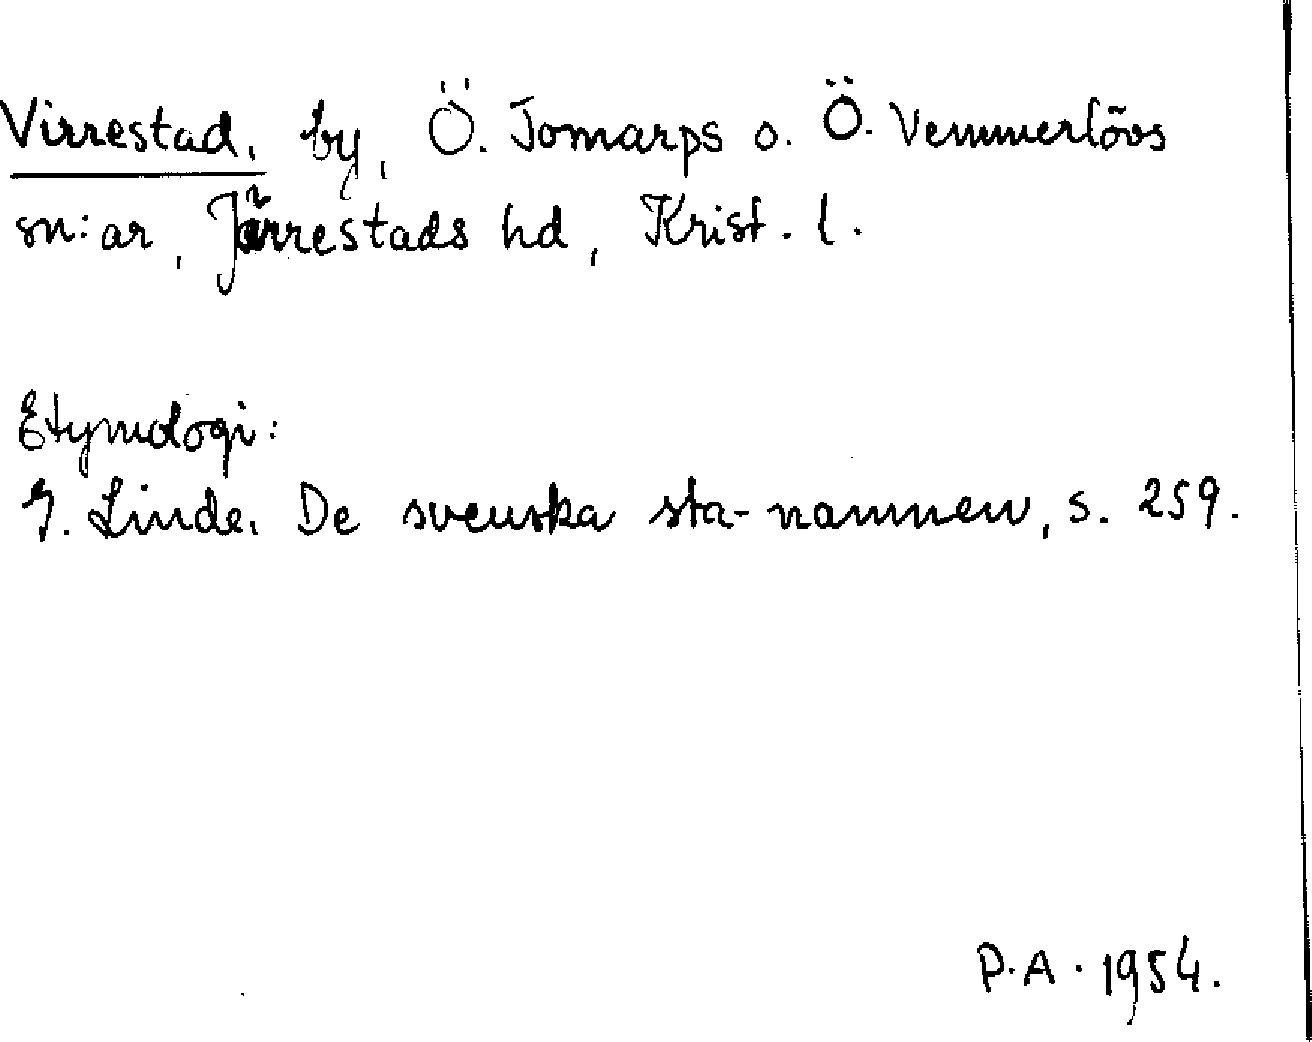 Virrestad, by, Ö. Tomarps o. Ö. Vemmerlövs
sn:ar, Järrestads hd, Krist. l.
Etymologi:
G. Linde. De svenska sta-namnen, s. 259.
P.A. 1954.